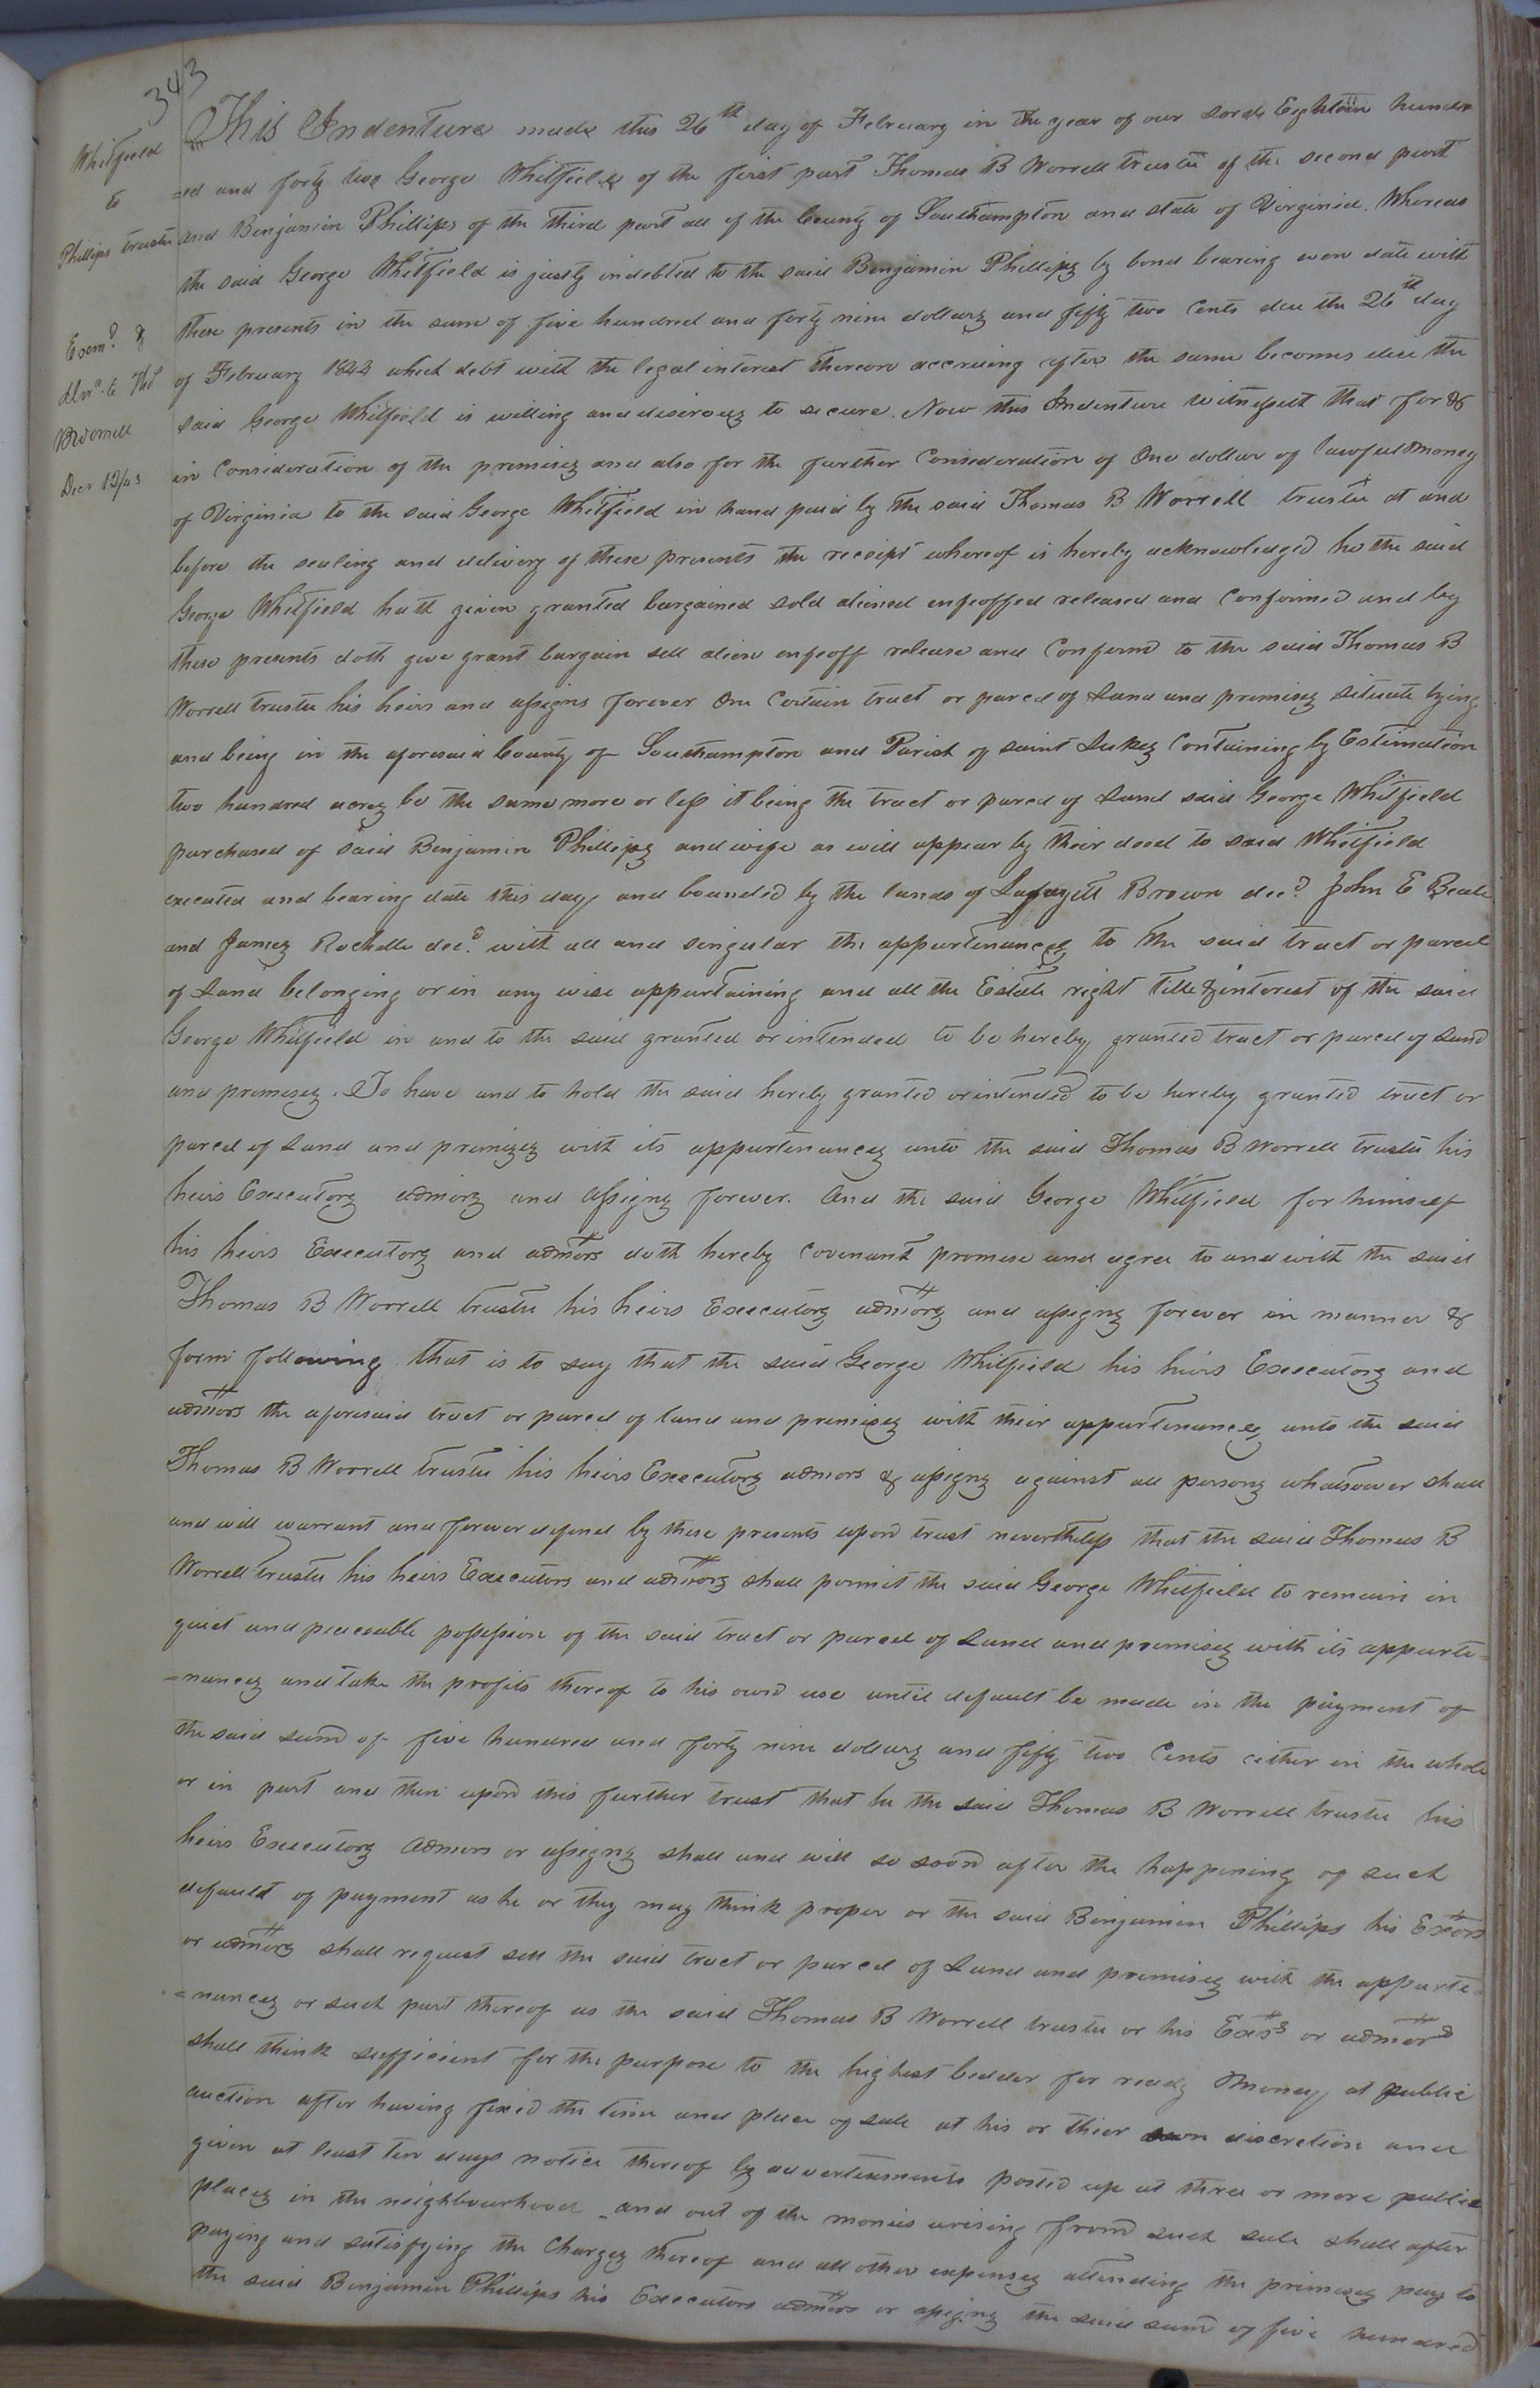 343
Whitfield
to
Phillips trustee
Exemd. &
dlvd. to Thos
B Worrell
Decr 12/43
This Indenture made this 26th day of February in the year of our Lord Eighteen hundr
=ed and forty two George Whitfield of the first part Thomas B Worrell trustee of the second part
and Benjamin Phillips of the third part all of the County of Southampton and state of Virginia. Whereas
the said George Whitfield is justly indebted to the said Benjamin Phillips by bond bearing even date with
these presents in the sum of five hundred and forty nine dollars and fifty two Cents due the 26th day
of February 1844 which debt with the legal interest thereon accruing after the same becomes due the
said George Whitfield is willing and desirous to secure. Now this Indenture witnesseth that for &
in Consideration of the premises and also for the further Consideration of One dollar of lawful money
of Virginia to the said George Whitfield in hand paid by the said Thomas B Worrell trustee at and
before the sealing and delivery of these presents the receipt whereof is hereby acknowledged he the said
George Whitfield hath given granted bargained sold aliened enfeoffed released and Confirmed and by
these presents doth give grant bargain sell alien enfeoff release and Confirm to the said Thomas B
Worrell trustee his heirs and assigns forever One Certain tract or parcel of Land and premises situate lying
and being in the aforesaid County of Southampton and Parish of saint Lukes Containing by Estimation
two hundred acres be the same more or less it being the tract or parcel of Land said George Whitfield
purchased of said Benjamin Phillips and wife as will appear by their deed to said Whitfield
executed and bearing date this day and bounded by the lands of Lafayett Brown decd. John E Beale
and James Rochelle decd. with all and singular the appurtenances to the said tract or parcel
of Land belonging or in any wise appurtaining and all the Estate right title & interest of the said
George Whitfield in and to the said granted or intended to be hereby granted tract or parcel of Land
and premises. To have and to hold the said hereby granted or intended to be hereby granted tract or
parcel of Land and premises with its appurtenances unto the said Thomas B Worrell trustee his
heirs Executors admors and Assigns forever. And the said George Whitfield for himself
his heirs Executors and admors doth hereby Covenant promise and agree to and with the said
Thomas B Worrell trustee his heirs Executors admors and assigns forever in manner &
form following that is to say that the said George Whitfield his heirs Executors and
admors the aforesaid tract or parcel of land and premises with their appurtenances unto the said
Thomas B Worrell trustee his heirs Executors admors & assigns against all persons whatsoever shall
and will warrant and forever defend by these presents upon trust nevertheless that the said Thomas B
Worrell trustee his heirs Executors and admors shall permit the said George Whitfield to remain in
quiet and peaceable possession of the said tract or parcel of Land and premises with its appurte=
=nances and take the profits thereof to his own use until default be made in the payment of
the said sum of five hundred and forty nine dollars and fifty two Cents either in the whole
or in part and then upon this further trust that he the said Thomas B Worrell trustee his
heirs Executors Admors or assigns shall and will so soon after the happening of such
default of payment as he or they may think proper or the said Benjamin Phillips his Exors
or admors shall request sell the said tract or parcel of Land and premises with the appurte=
=nances or such part thereof as the said Thomas B Worrell trustee or his Exors or admors
shall think sufficient for the purpose to the highest bedder for ready money at public
auction after having fixed the time and place of sale at his or thier own discretion and
given at least ten days notice thereof by advertisements posted up at three or more public
places in the neighbourhood and out of the monies arising from such sale shall after
paying and satisfying the Charges thereof and all other expenses attending the premises pay to
the said Benjamin Phillips his Executors admors or assigns the said sum of five hundred